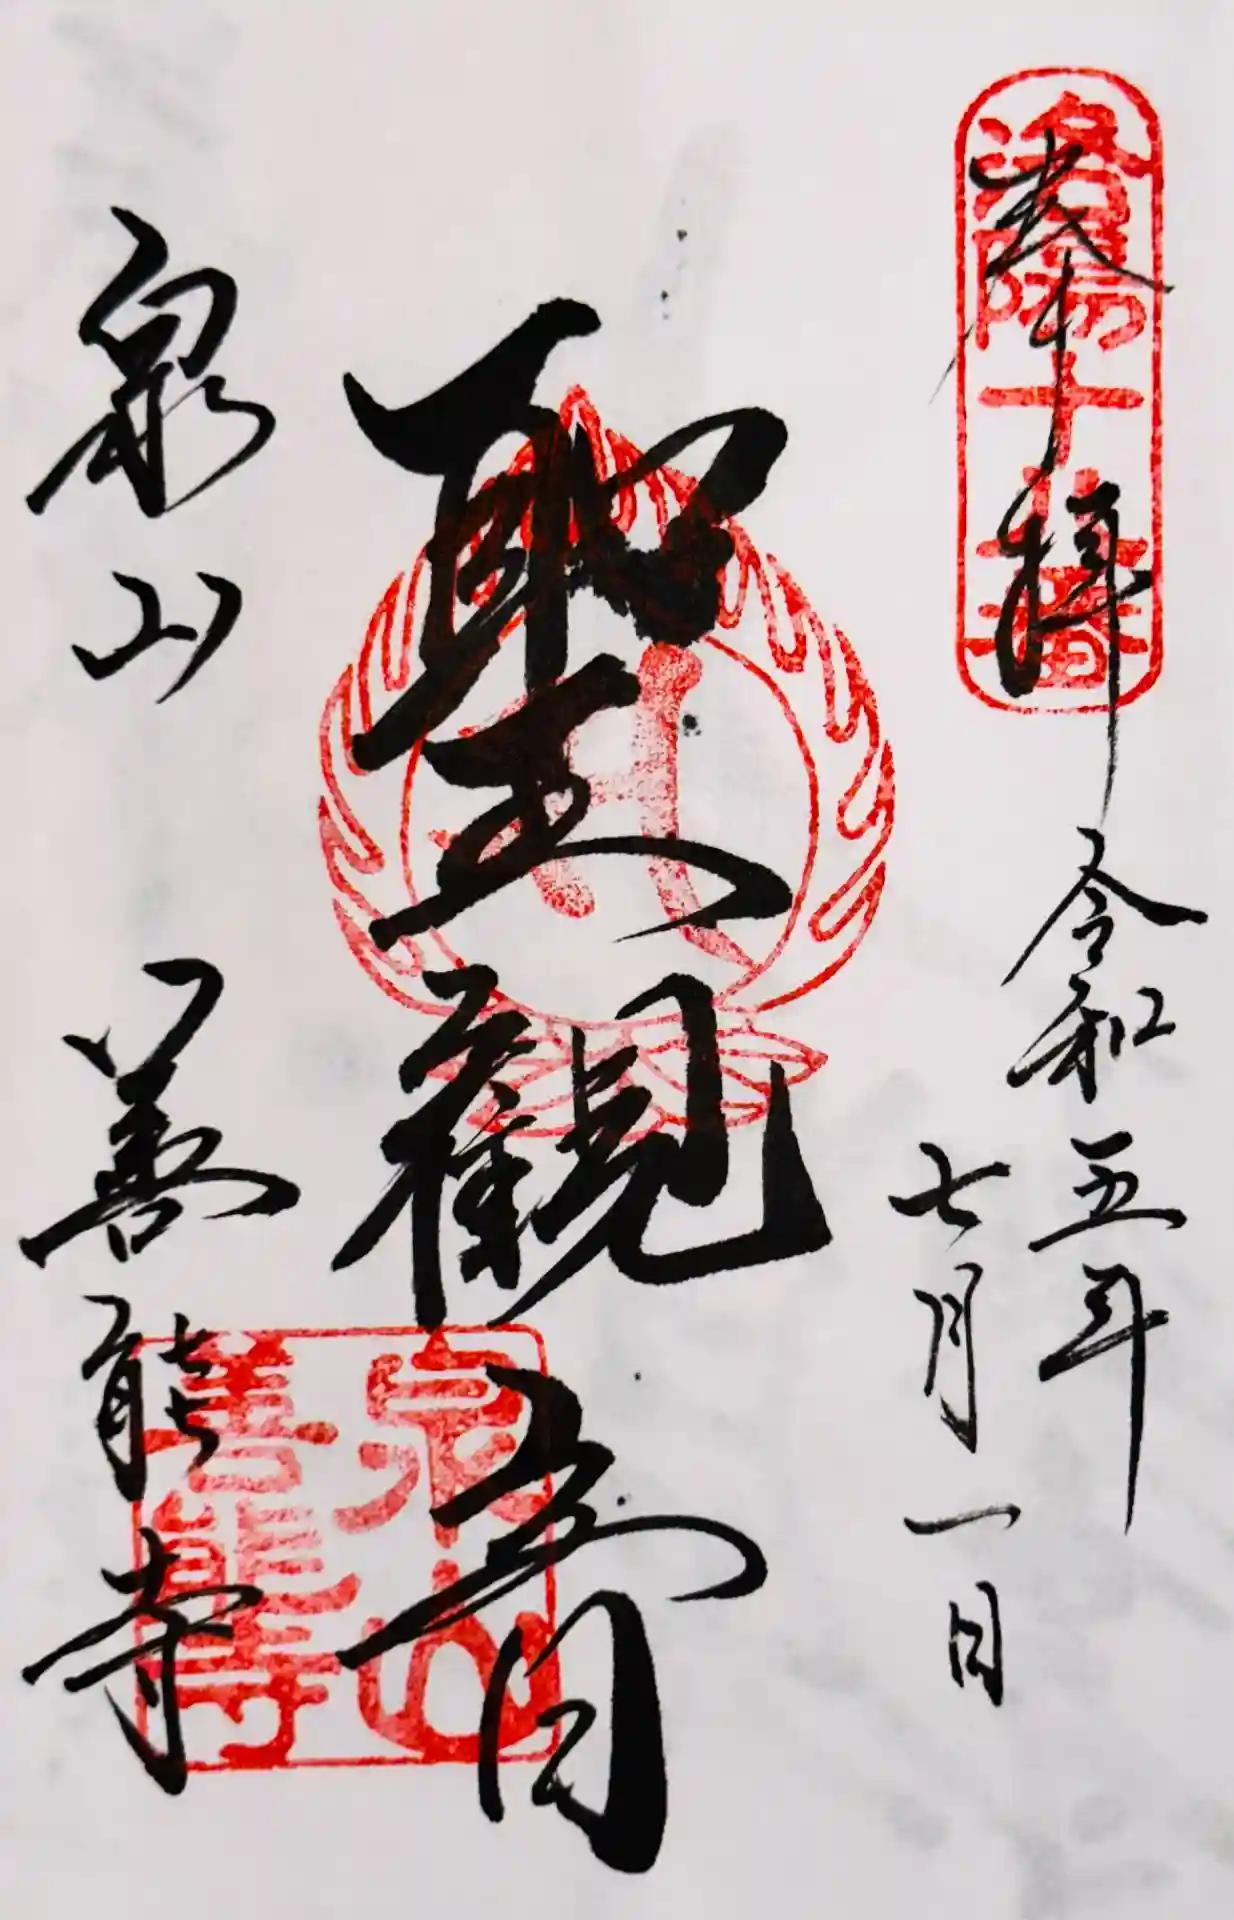 洛陽十八番
奉拝
令和五年
七月一日
聖觀音
泉山
善能寺
泉山
善能寺